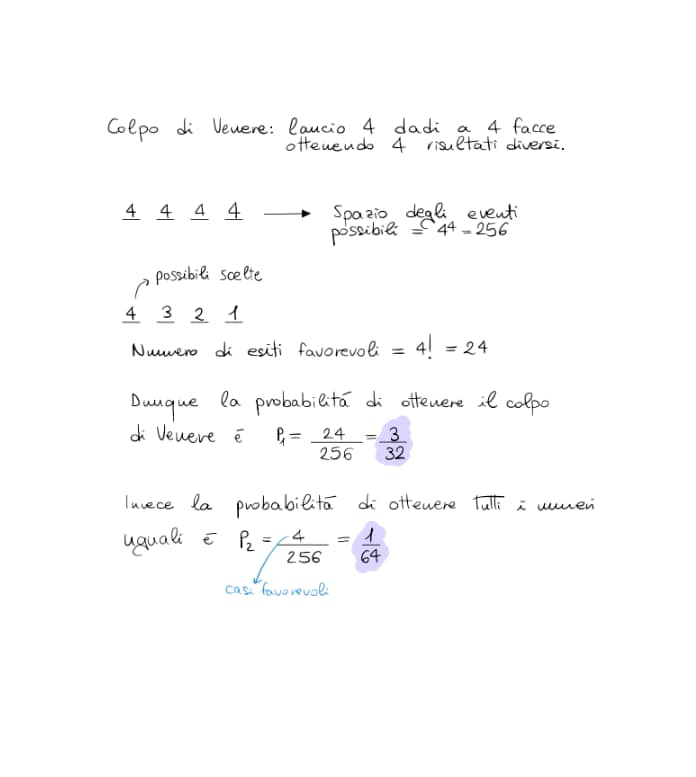 Colpo di Venere: lancio 4 dadi a 4 facce
ottenendo 4 risultati diversi.
4 4 4 4 → Spazio degli eventi
possibili = 4⁴ = 256
possibili scelte
4 3 2 1
Numero di esiti favorevoli = 4! = 24
Dunque la probabilitá di ottenere il colpo
di Venere é P₁ = 24/256 = 3/32
Invece la probabilitá di ottenere tutti i numeri
uguali é P₂ = 4/256 = 1/64
casi favorevoli